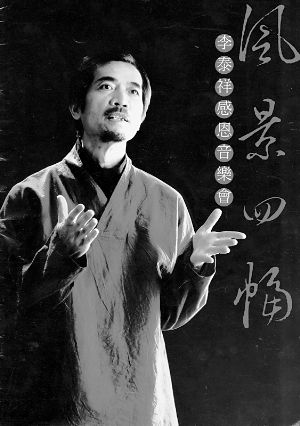 風景四幅
李泰祥感恩音樂會